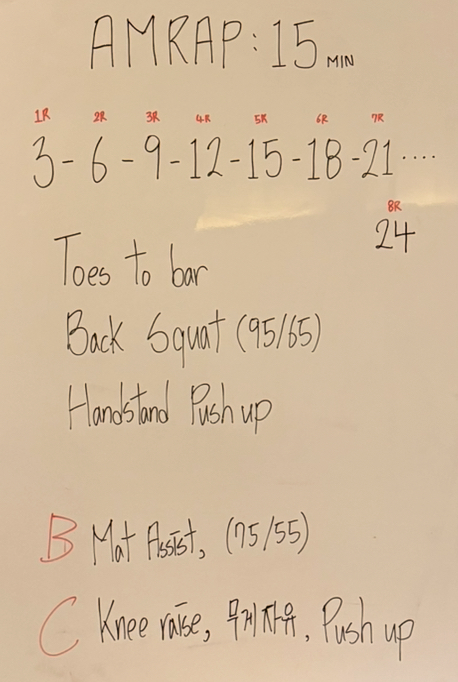 AMRAP: 15 MIN
1R 2R 3R 4R 5R 6R 7R
3-6-9-12-15-18-21....
8R
24
Toes to bar
Back Squat (95/65)
Handstand Push up
B Mat Assist, (75/55)
C Knee raise, 무게자유, Push up